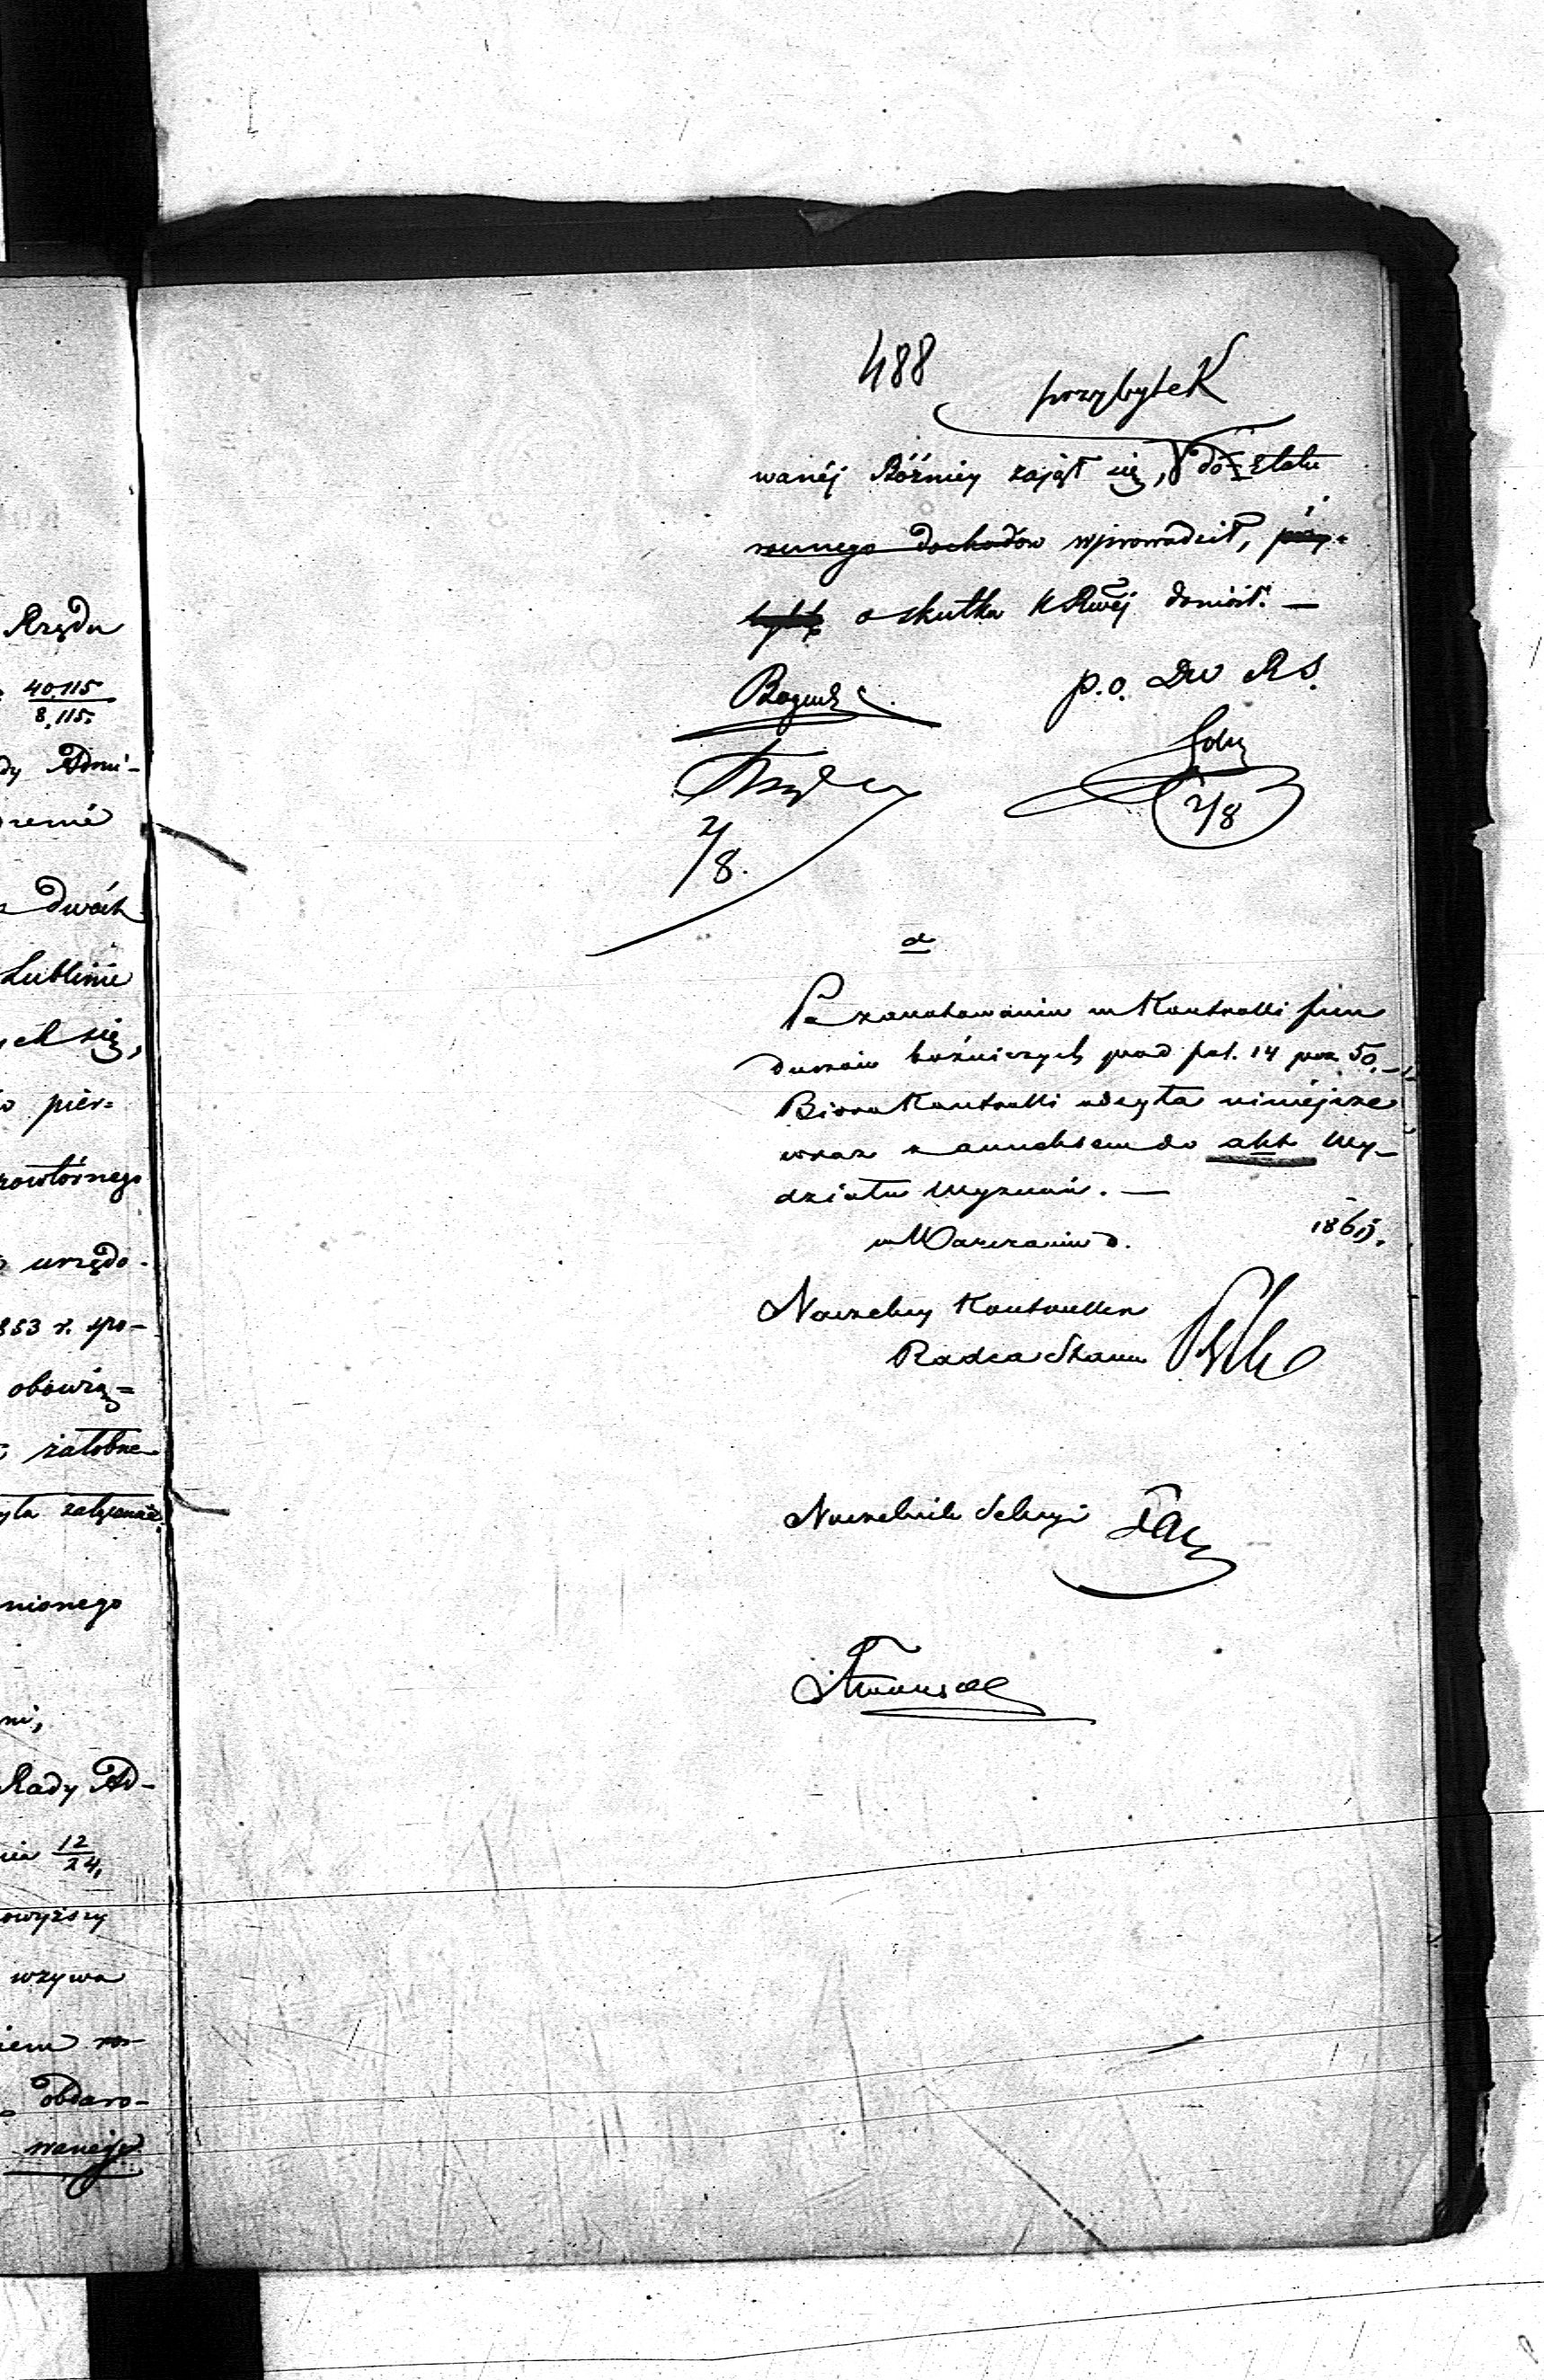 Rządu
40.115
8,115.
dy Admi-
dwóch
Lublinie
ych się,
pier=
powtórnego
urzędo-
853 r. spo-
obowią=
żałobne
nionego
ni,
Rady Ad-
nia 12
24,
owyższy
wzywa
obdaro-
wanéj
488
przybytek
wanéj Bóżnicy zajął się, do Etatu
rocznego dochodów wprowadził, przy=
o skutku KRwéj doniósł. —
p.o. Dw RS.
2/8
2/8.
Po zanotowaniu w Kontrolli fun
duszów bóżniczych pod pol. 14 poz. 50. —
Biuro Kontrolli odsyła niniejsze
wraz z annexem do akt Wy-
działu Wyznań. —
w Warszawie d. 1861.
Naczelny Kontroller
Radca Stanu
Naczelnik Sekcyi